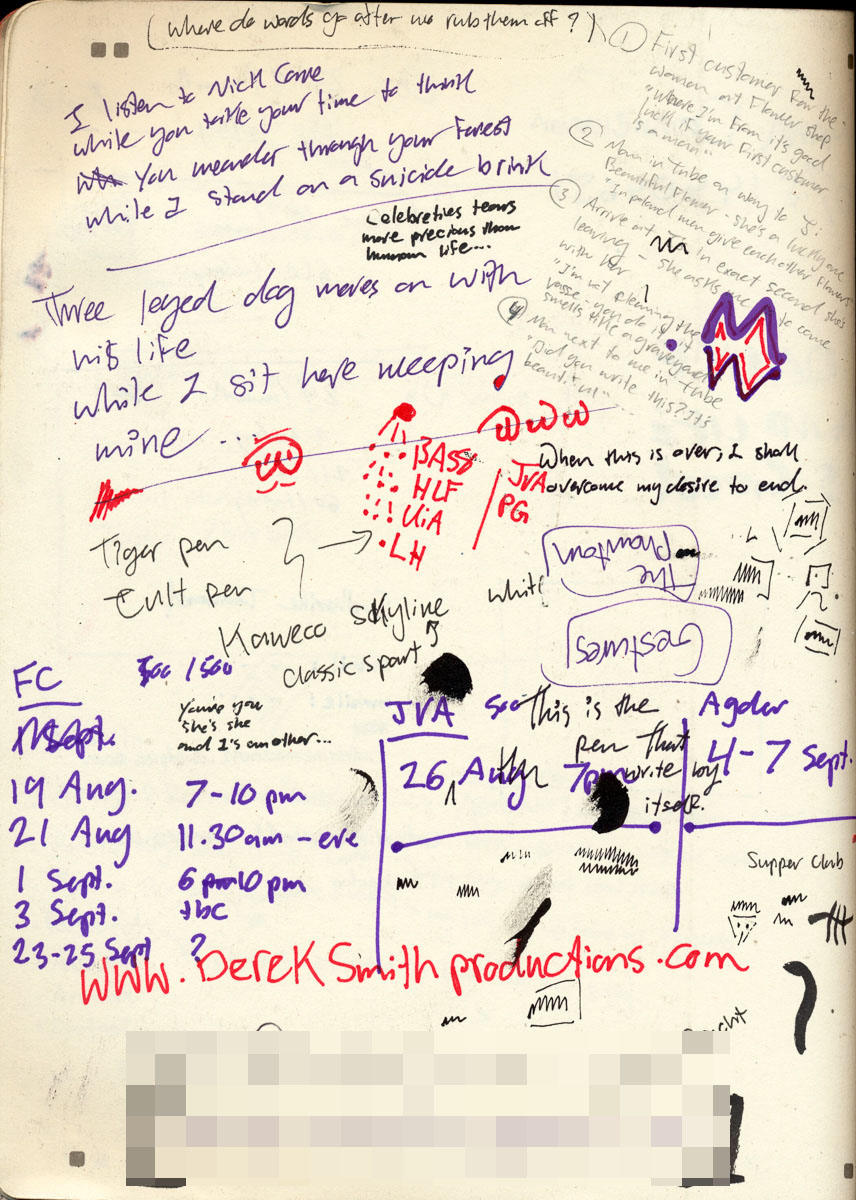 (where do words go after we rub them off?)
I listen to Nick Cave
while you take your time to think
You meander through your forest
while I stand on a suicide brink
Celebreties tears
more precious than
human life...
Three leged dog moves on with
his life
while I sit here weeping
mine...
① First customer for the
woman at Flower shop
"Where I'm from it's good
luck if your first customer
is a man"
② Man in tube on way to J:
Beautiful Flower - she's a lucky one
"In poland men give each other flowers"
③ Arrive at J's in exact second she's
leaving - she asks me to come
with her
"I'm not cleaning the
vase - you do it, it
smells like a graveyard
④ Man next to me in tube
"Did you write this? It's
beautiful"...
When this is over, I shall
overcome my desire to end.
BASS
HLF
UiA
LH
JVA
PG
Tiger pen
Cult pen
Kaweco skyline
classic sport
white
The
Phantom
Gestures
FC
500 / 500
You're you
she's she
and I's another...
Sept.
19 Aug. 7-10 pm
21 Aug 11.30am - eve
1 Sept. 6 pm-10 pm
3 Sept. tbc
23-25 Sept ?
JVA
26 Aug 7pm
This is the
pen that
write by
itself.
Agder
4-7 Sept.
Supper club
www.DerekSmithproductions.com